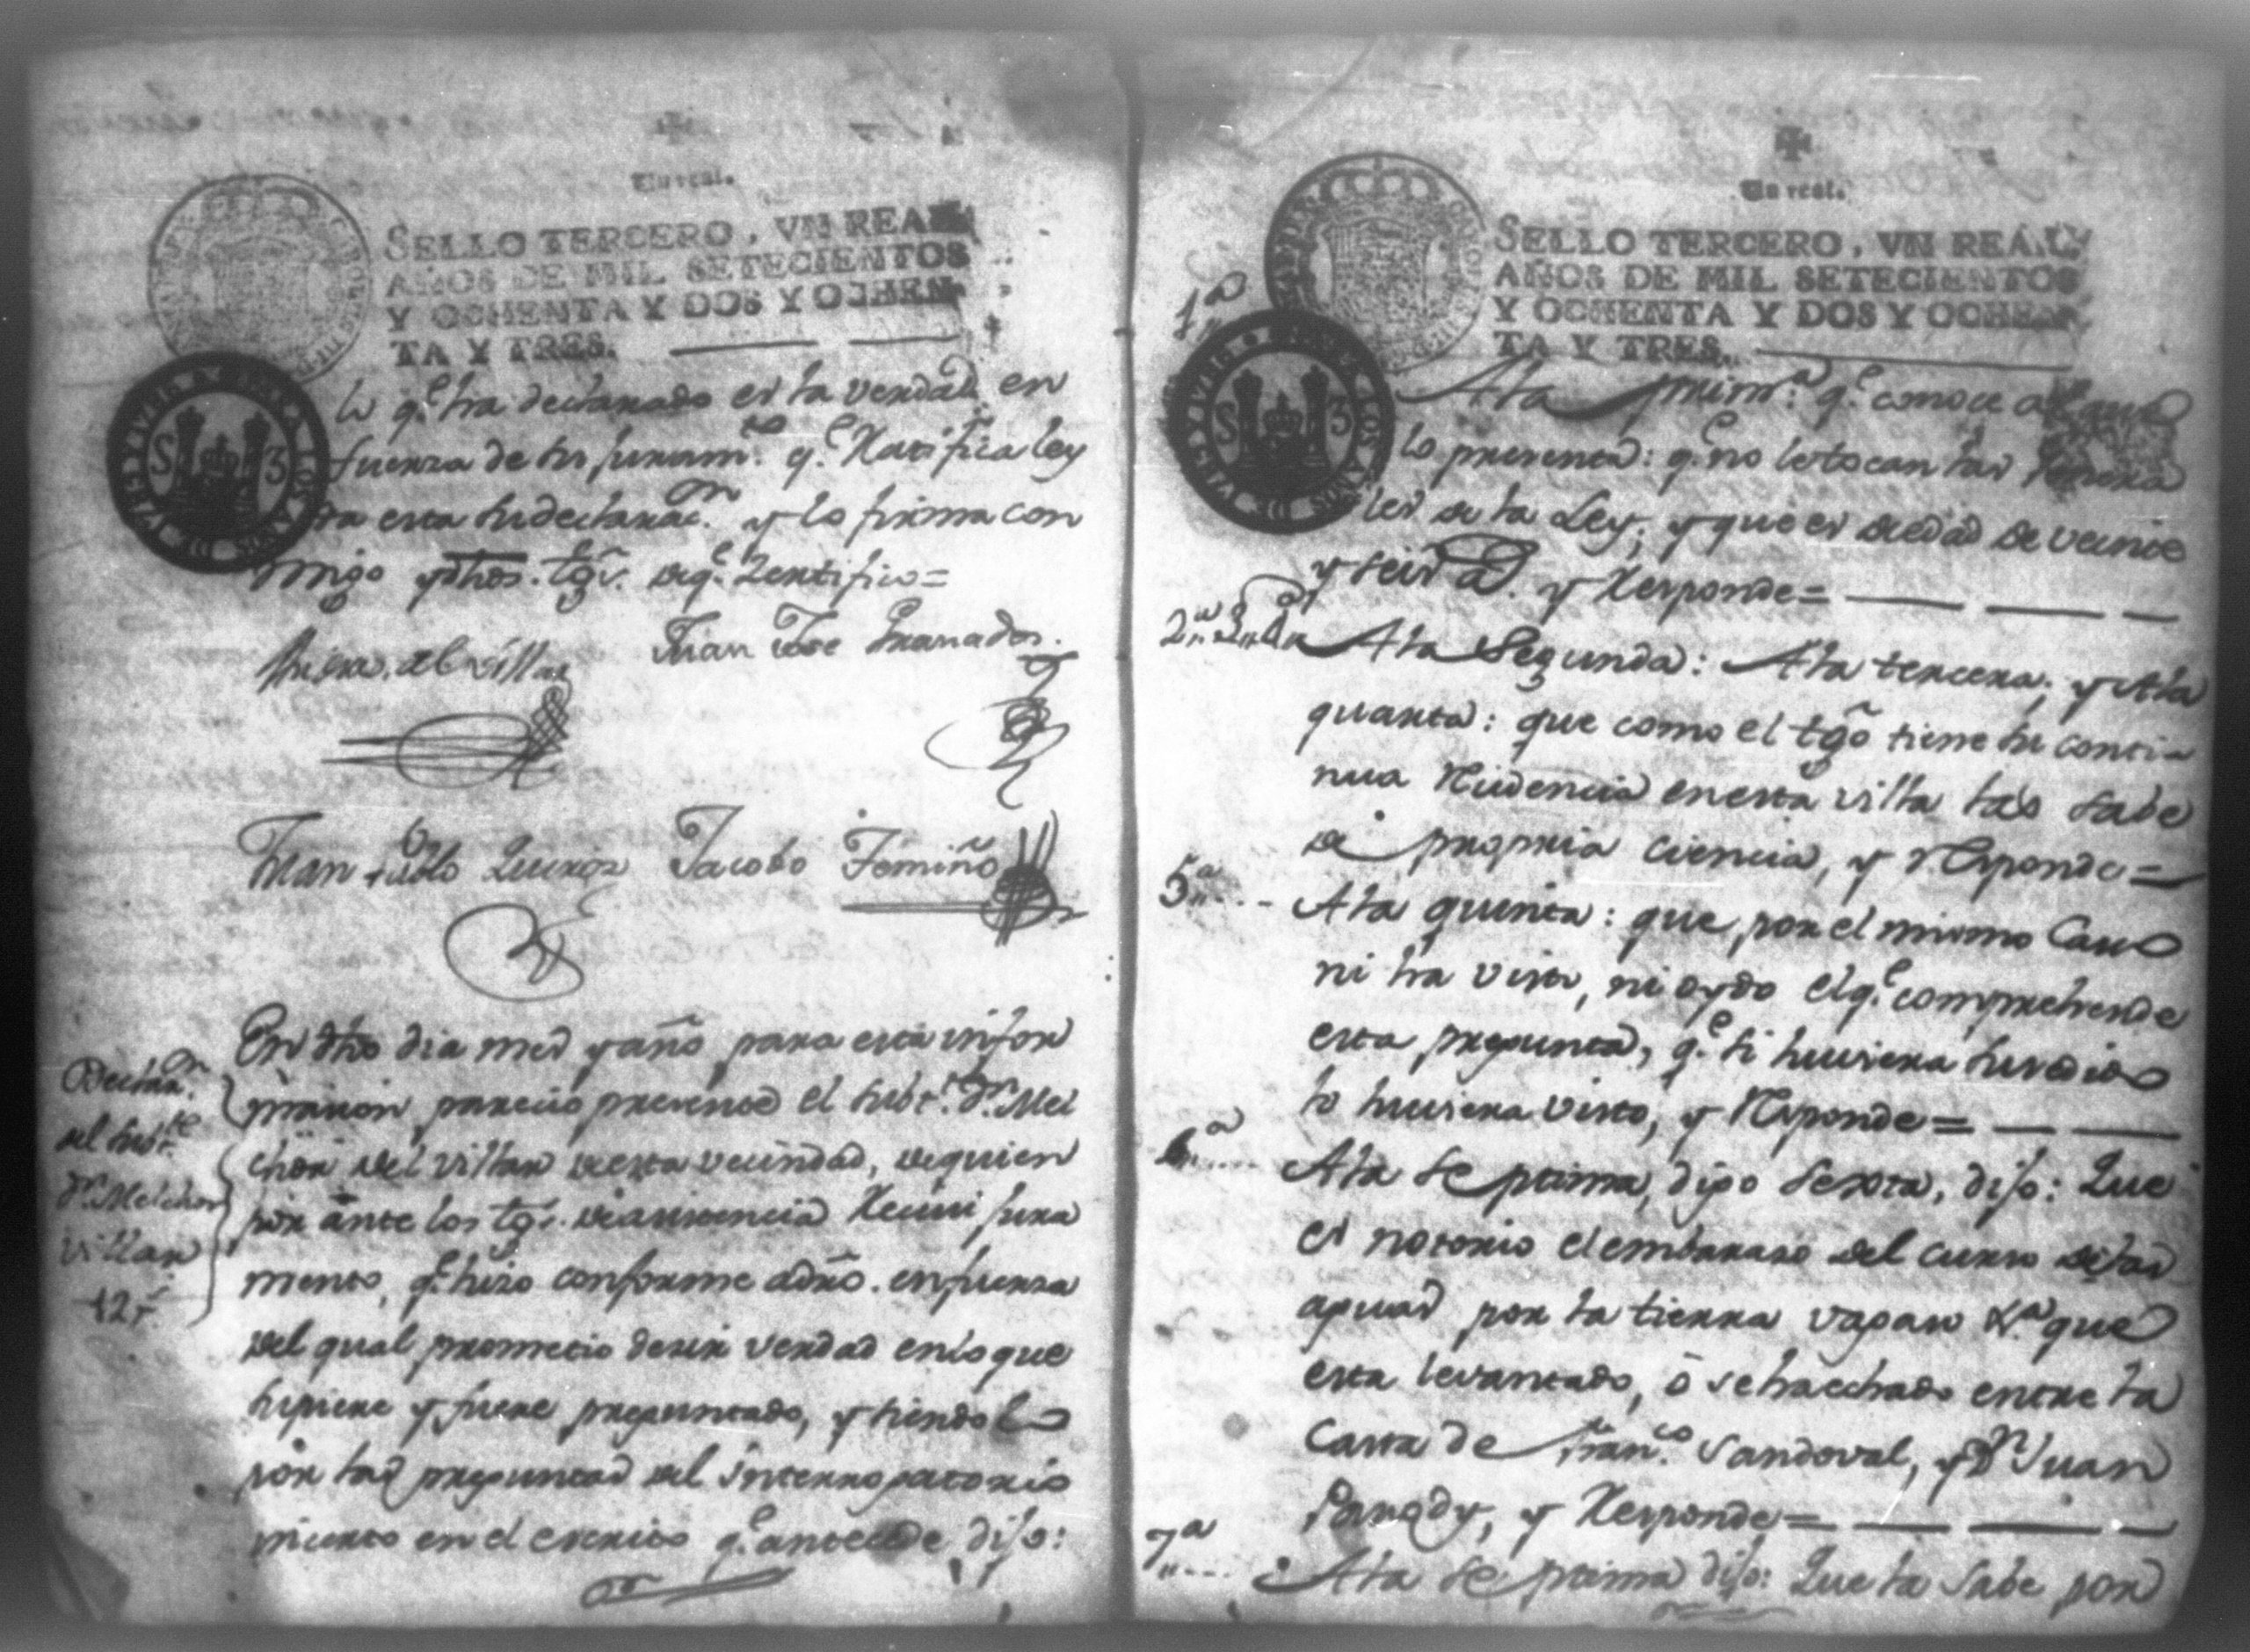 Un real.
SELLO TERCERO, VN REAL
AÑOS DE MIL SETECIENTOS
Y OCHENTA Y DOS Y OCHEN-
TA Y TRES.
lo q.e ha declarado es la verdad en
fuerza de su juram.to q.e Ratifica ley
da esta su declarac.on y lo firma con
migo y dhos. tgs. de q.e Zertifico=
del Villar
Juan Jose Granados.
Juan Pablo Quiros
Jacobo Femiño
En dho dia mes y año para esta infor
macion parecio presente el Subt.te d.n Mel
chor del villar de esta vecindad, de quien
por ante los tgs. de asistencia Recivi jura
mento, q.e hizo conforme a dro. en fuerza
del qual prometio desir verdad en lo que
supiere y fuere preguntado, y siendo lo
por las preguntas del Interrogatorio
puesto en el escrito q.e antecede dijo:
Declar.on
del Subt.te
d.n Melchor
Villar
12 r.
Un real.
SELLO TERCERO, VN REAL
AÑOS DE MIL SETECIENTOS
Y OCHENTA Y DOS Y OCHEN-
TA Y TRES.
1.a
A la prim.a q.e conoce a el que
lo presenta: q.e no le tocan las Genera
les de la Ley, y que es de edad de veinte
y seis a.s y Responde=
2.a 3.a 4.a
A la Segunda: A la tercera, y A la
quarta: que como el tgo tiene su conti-
nua Recidencia en esta villa las sabe
de propria ciencia, y Responde=
5.a
A la quinta: que por el mismo Caso
ni ha visto, ni oydo el q.e comprehende
esta pregunta, q.e si huviera susedido
lo huviera visto, y Responde=
6.a
A la septima, digo sexta, dijo: Que
es notorio el embaraso del curso de las
aguas por la tierra que
esta levantado, ó se ha echado entre la
Cassa de Fran.co Sandoval, y d.n Juan
Parody, y Responde=
7.a
A la septima dijo: Que la sabe por